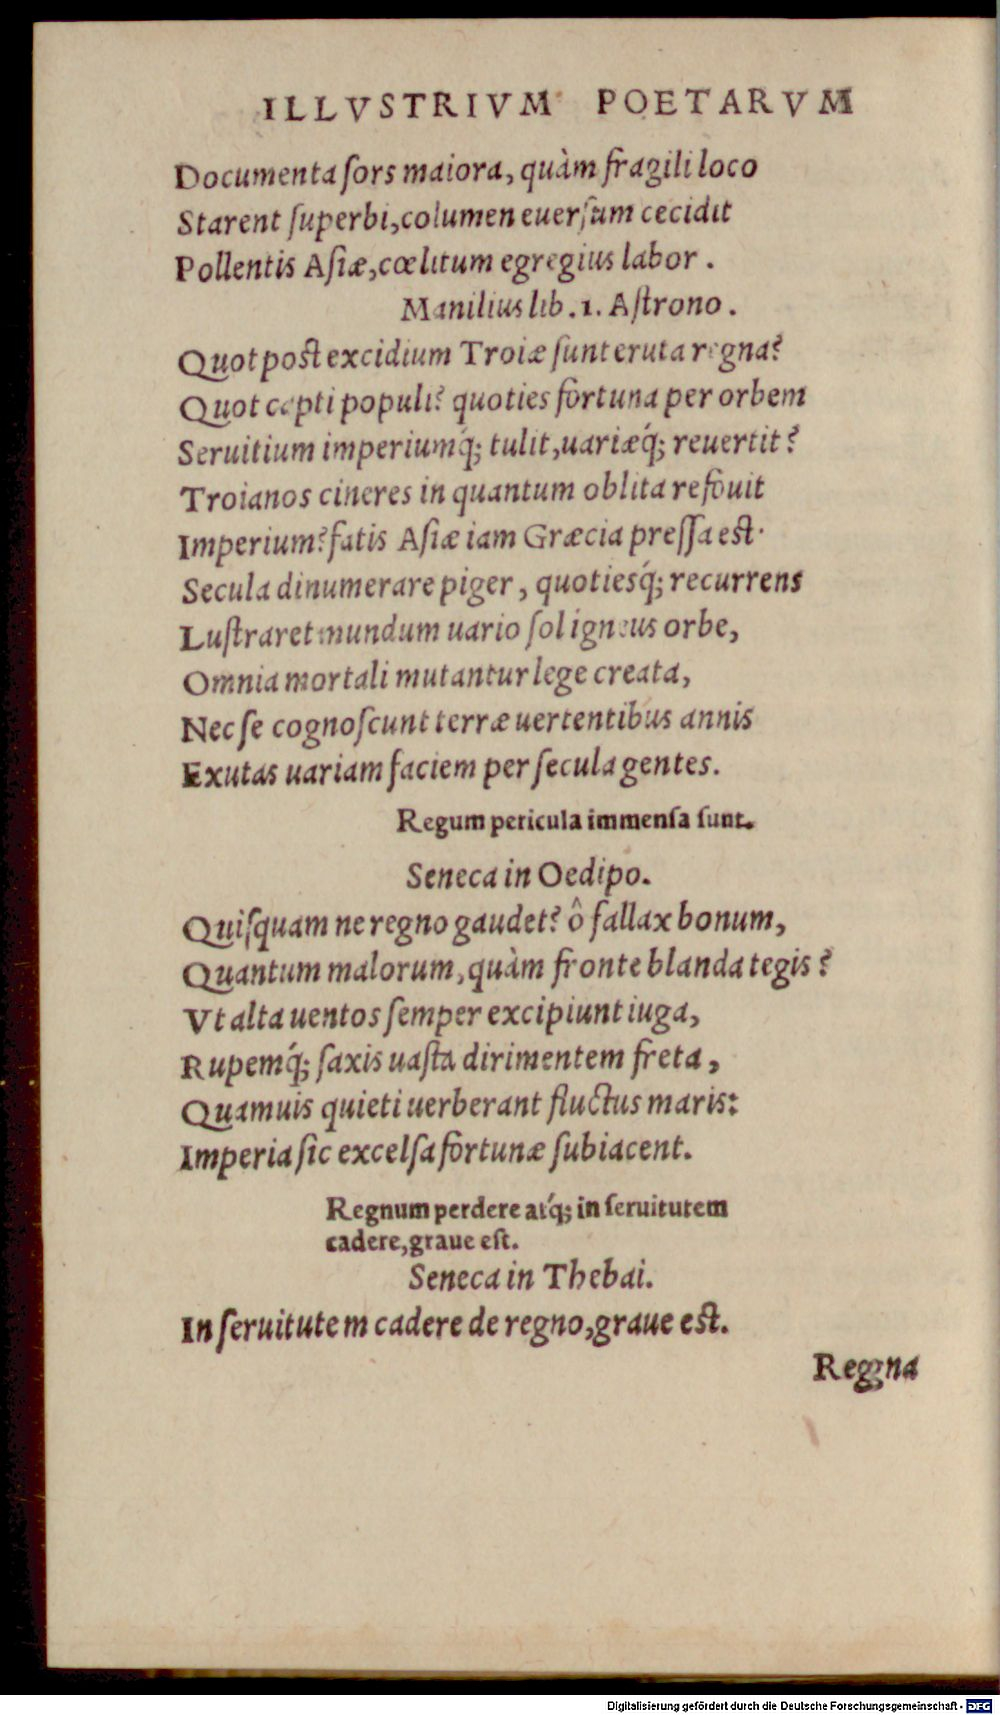 ILLVSTRIVM POETARVM
Documenta ſors maiora, quàm fragili loco
Starent ſuperbi, columen euerſum cecidit
Pollentis Aſiæ, cœlitum egregius labor.
Manilius lib. 1. Aſtrono.
Quot poſt excidium Troiæ ſunt eruta regna?
Quot capti populi? quoties fortuna per orbem
Seruitium imperiumq́; tulit, uariæq́; reuertit?
Troianos cineres in quantum oblita refouit
Imperium? fatis Aſiæ iam Græcia preſſa eſt.
Secula dinumerare piger, quotiesq́; recurrens
Luſtraret mundum uario ſol igneus orbe,
Omnia mortali mutantur lege creata,
Nec ſe cognoſcunt terræ uertentibus annis
Exutas uariam faciem per ſecula gentes.
Regum pericula immenſa ſunt.
Seneca in Oedipo.
Quiſquam ne regno gaudet? ô fallax bonum,
Quantum malorum, quàm fronte blanda tegis?
Vt alta uentos ſemper excipiunt iuga,
Rupemq́; ſaxis uaſta dirimentem freta,
Quamuis quieti uerberant fluctus maris:
Imperia ſic excelſa fortunæ ſubiacent.
Regnum perdere atq́; in ſeruitutem
cadere, graue eſt.
Seneca in Thebai.
In ſeruitutem cadere de regno, graue eſt.
Reggna
Digitalisierung gefördert durch die Deutsche Forschungsgemeinschaft - DFG